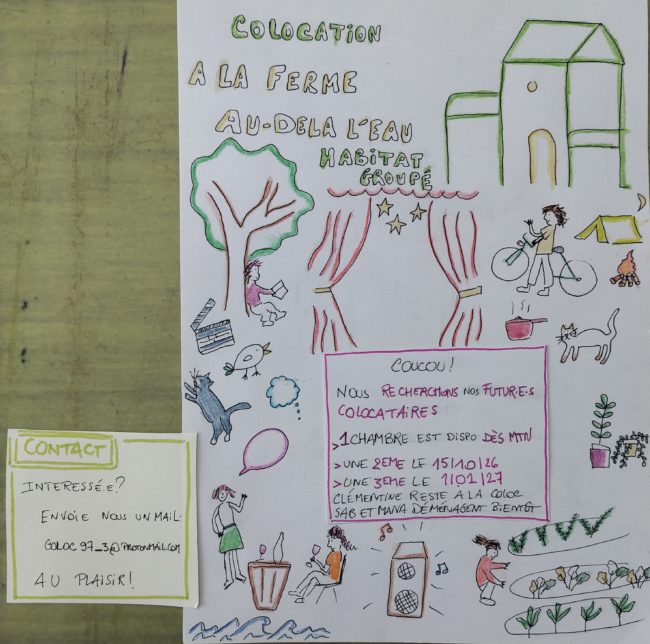 COLOCATION
A LA FERME
AU-DELA L'EAU
HABITAT
GROUPÉ
COUCOU!
NOUS RECHERCHONS NOS FUTUR·E·S
COLOCATAIRES:
>1 CHAMBRE EST DISPO DÈS MTN
>UNE 2EME LE 15/10/26
>UNE 3EME LE 1/01/27
CLÉMENTINE RESTE A LA COLOC
SAB ET MANA DÉMÉNAGENT BIENTÔT
CONTACT
INTERESSÉ·E?
ENVOIE NOUS UN MAIL:
COLOC97_3@PROTONMAIL.COM
AU PLAISIR!